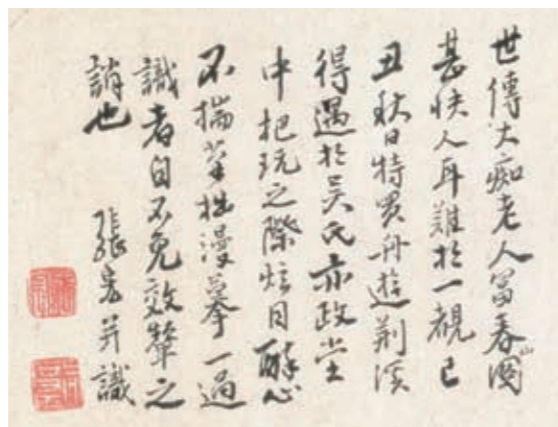 世傳大痴老人富春山圖
甚快人耳難於一覩己
丑秋日特買舟遊荆溪
得遇於吳氏亦政堂
中把玩之際炫目醉心
不揣筆拙漫摹一過
識者自不免效顰之
誚也 張宏并識